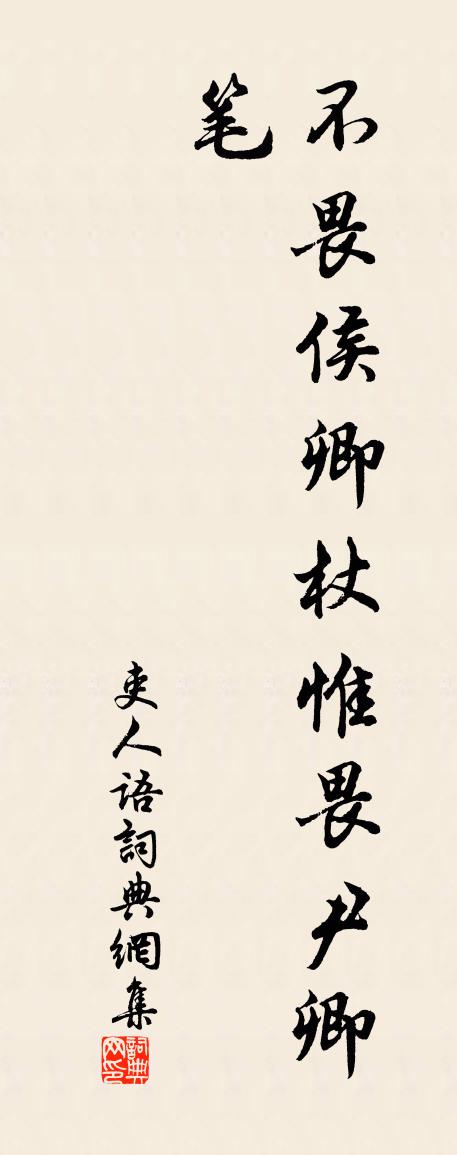 不畏侯卿杖惟畏尹卿
笔
吏人语詞典網集
詞典网印